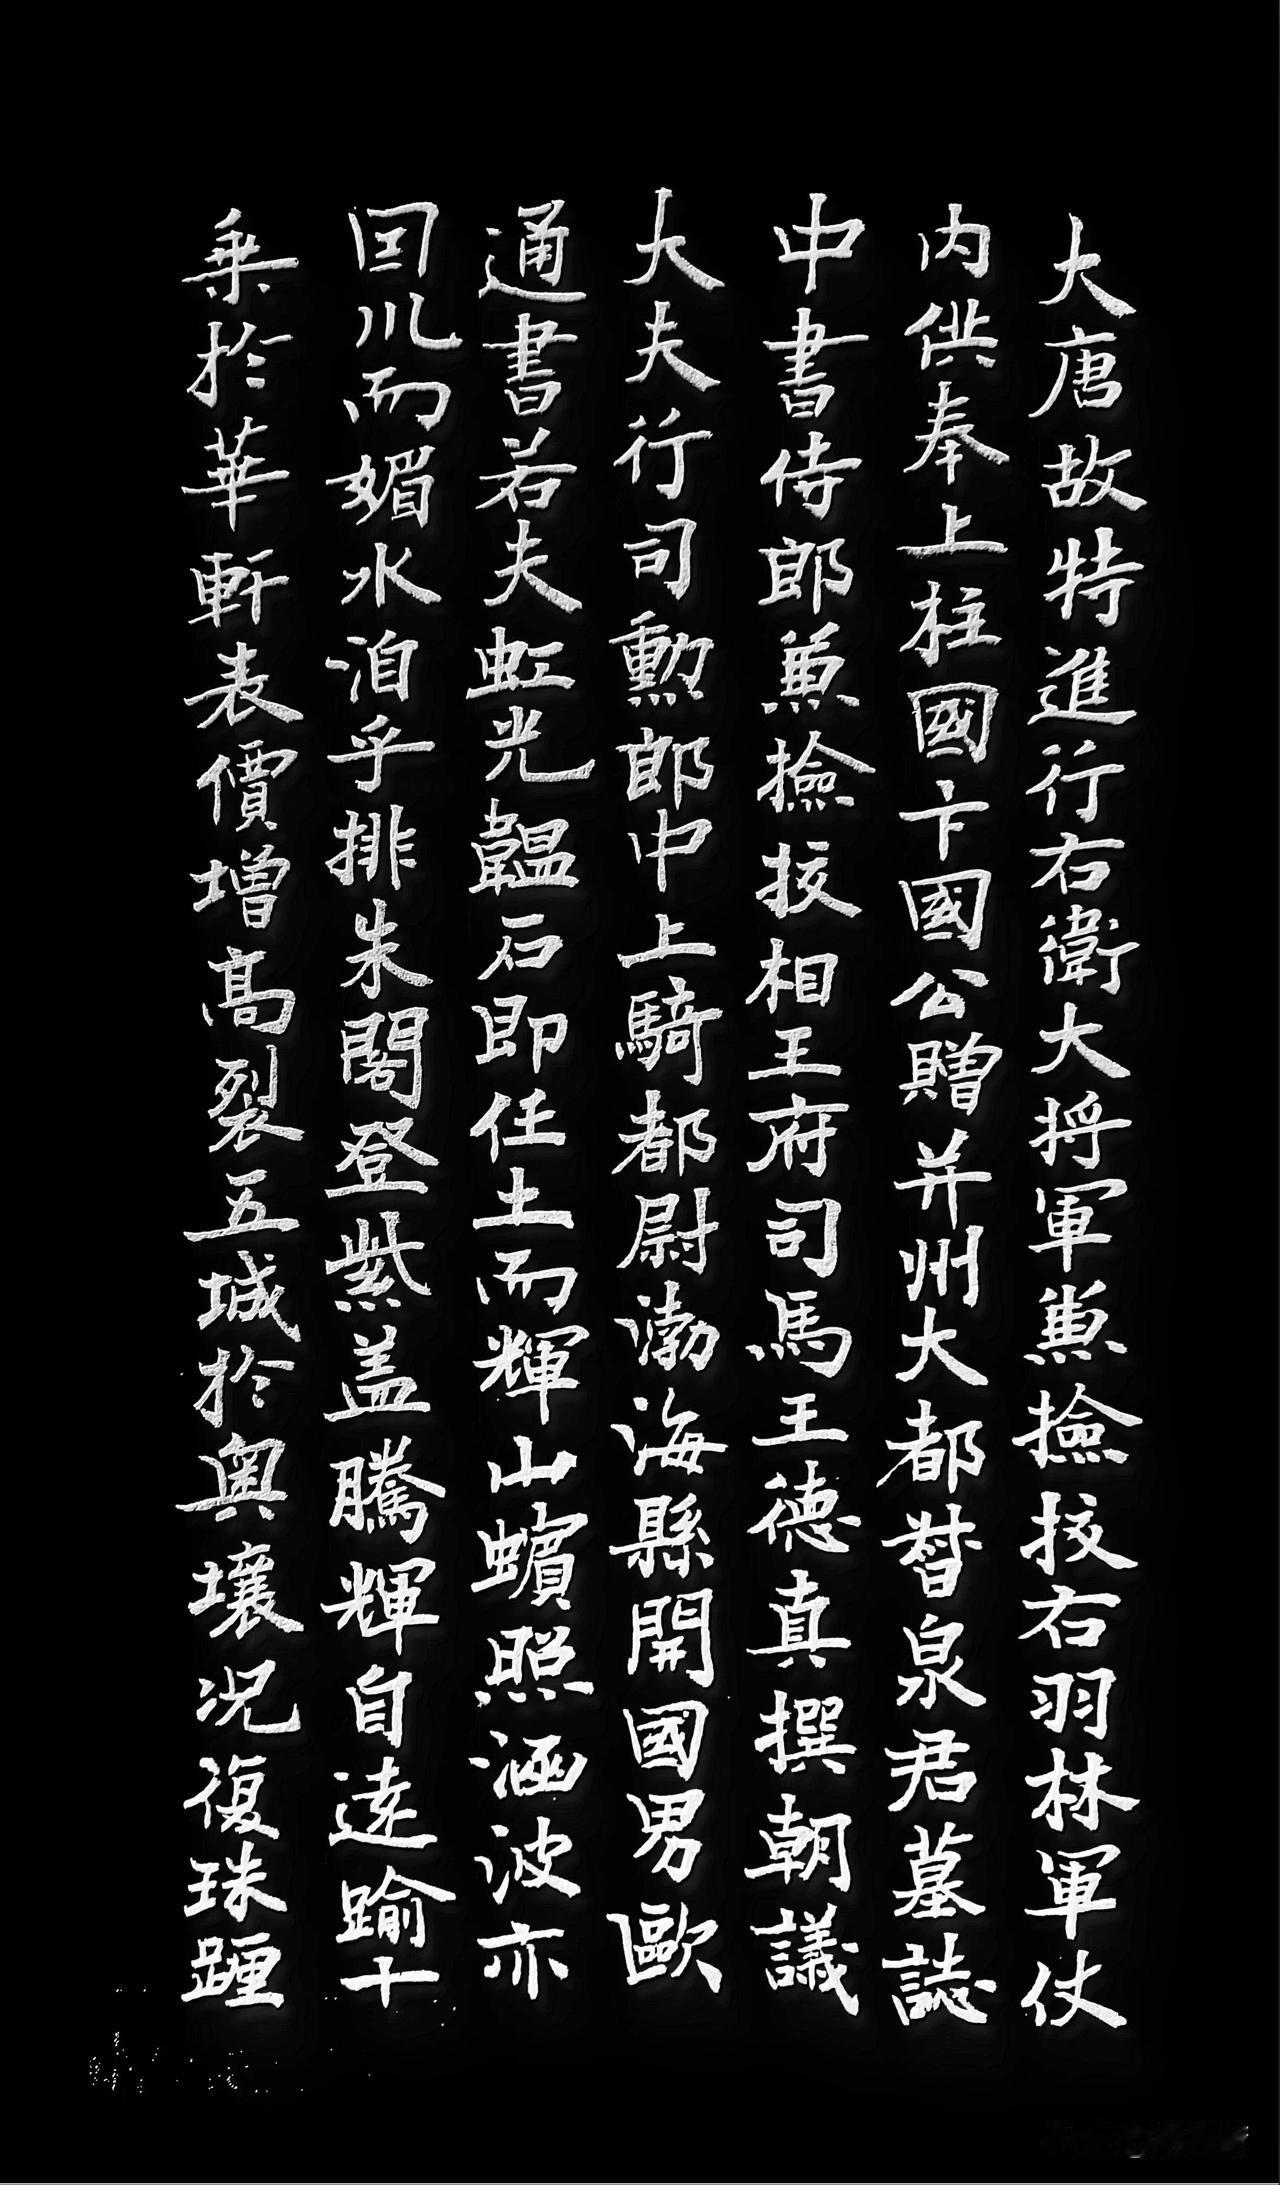 大唐故特進行右衛大將軍兼撿挍右羽林軍仗
内供奉上柱國卞國公贈并州大都督泉君墓誌
中書侍郎兼撿挍相王府司馬王德真撰朝議
大夫行司勲郎中上騎都尉渤海縣開國男歐
通書若夫虹光韞石即任土而輝山蠙照涵波亦
囙川而媚水洎乎排朱閣登紫盖騰輝自遠踰十
乗於華軒表價增高裂五城於奥壤况復珠躔